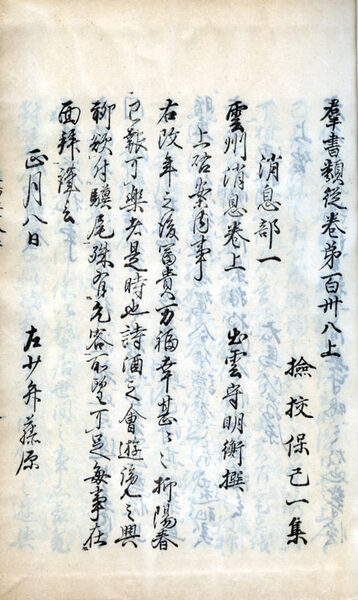 羣書類従巻第百卅八上
撿挍保己一集
消息部一
雲州消息巻上　出雲守明衡撰
上啓案内事
右改年之後富貴万福幸甚々々抑陽春
已報可樂者是時也詩酒之會遊蕩之興
聊欲付驥尾殊有允容所望可足毎事在
面拜謹言
正月八日　左少弁藤原